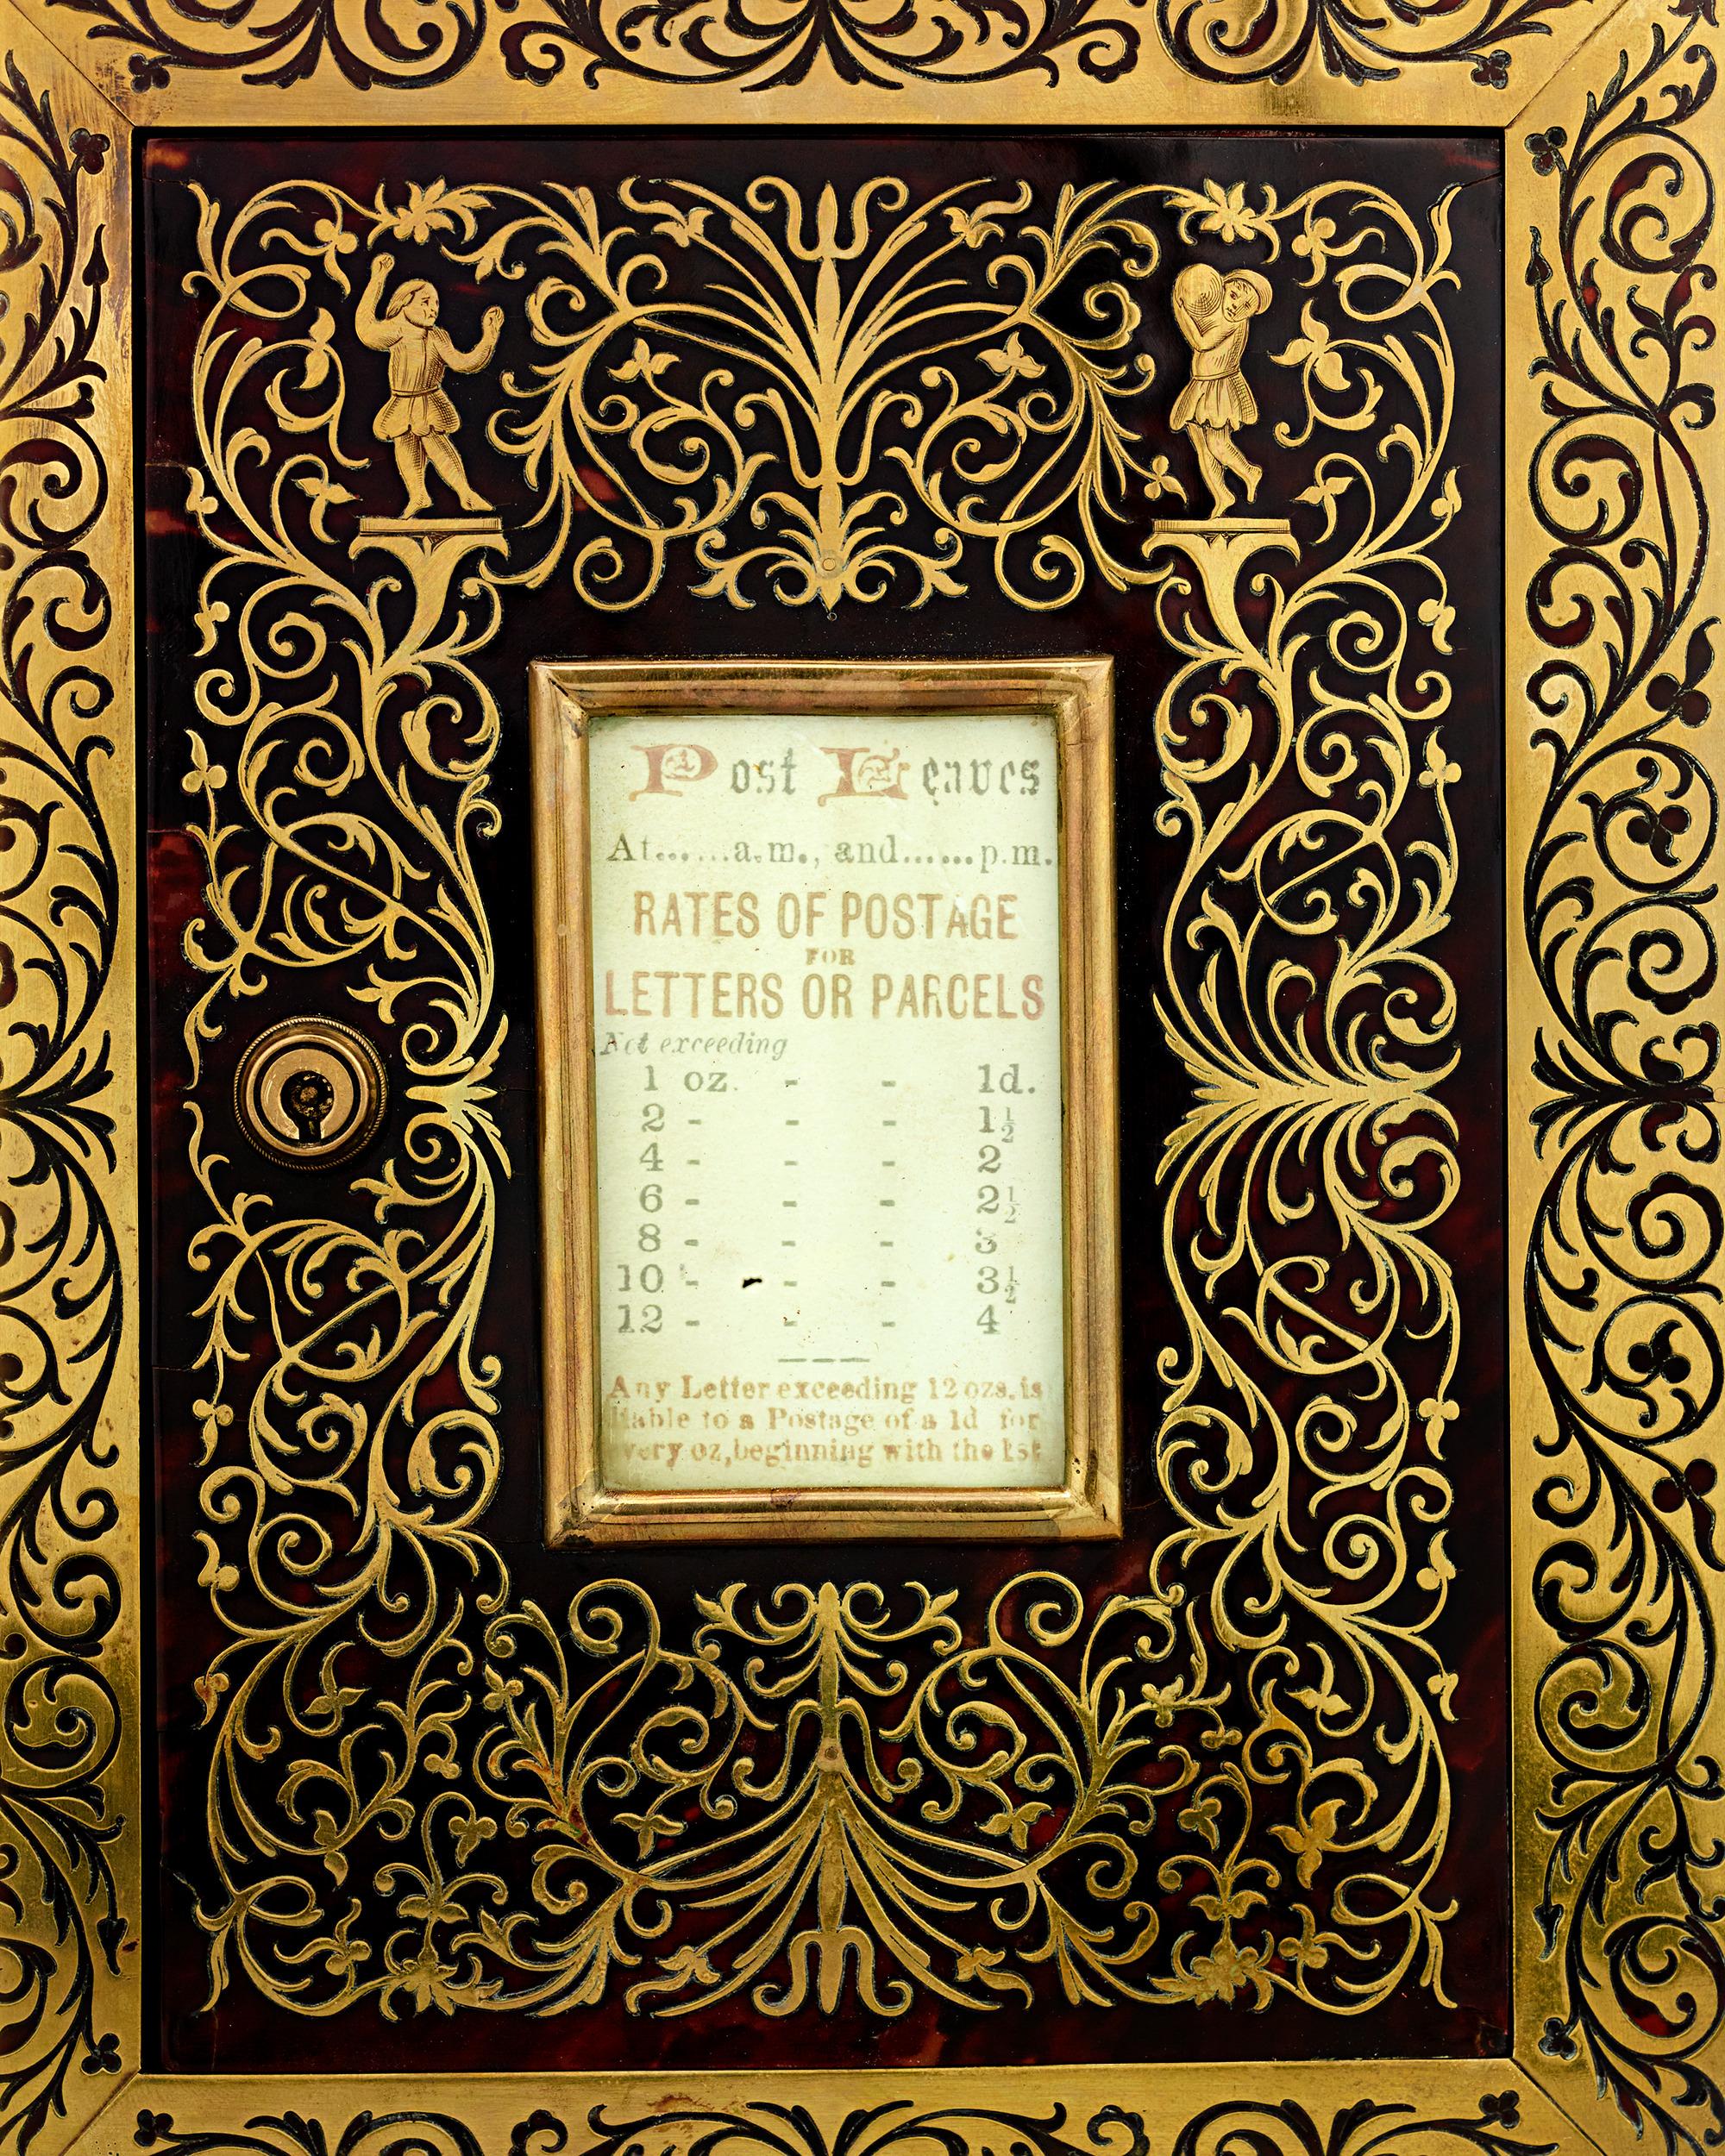 Post Leaves
At......a.m., and......p.m.
RATES OF POSTAGE
FOR
LETTERS OR PARCELS
Not exceeding
1 oz. - - 1d.
2 - - - 1½
4 - - - 2
6 - - - 2½
8 - - - 3
10 - - - 3½
12 - - - 4
Any Letter exceeding 12 ozs. is
liable to a Postage of a 1d for
every oz, beginning with the 1st